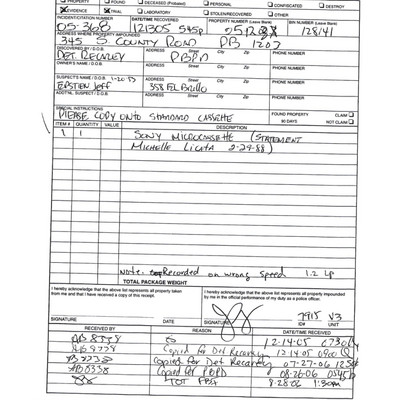 PROPERTY FOUND DECEASED (Probated) PERSONAL CONFISCATED DESTROY
EVIDENCE TRIAL LABORATORY STOLEN/RECOVERED OTHER
INCIDENT/CITATION NUMBER DATE/TIME RECOVERED PROPERTY NUMBER (Leave Blank) BIN (Leave Blank)
05-368 121305 545p 128141
ADDRESS WHERE PROPERTY IMPOUNDED
345 S. COUNTY ROAD PB 1207
DISCOVERED BY / D.O.B. ADDRESS Street City Zip PHONE NUMBER
DET. RECAREY PBPD
OWNER'S NAME / D.O.B. ADDRESS Street City Zip PHONE NUMBER
SUSPECT'S NAME / D.O.B. 1-20-53 ADDRESS Street City Zip PHONE NUMBER
EPSTIEN, Jeff 358 EL BRILLO
ADD'TL SUSPECT / D.O.B. ADDRESS Street City Zip PHONE NUMBER
SPECIAL INSTRUCTIONS FOUND PROPERTY CLAIM
PLEASE COPY ONTO STANDARD CASSETTE 90 DAYS NOT CLAIM
ITEM # QUANTITY VALUE DESCRIPTION
1 1 SONY MICROCASSETTE (STATEMENT
MICHELLE LICATA 2-29-88)
Note: Recorded on wrong speed 1.2
TOTAL PACKAGE WEIGHT
I hereby acknowledge that the above list represents all property taken from me and that I have received a copy of this receipt.
I hereby acknowledge that the above list represents all property impounded by me in the performance of my duty as a police officer.
7915 V3
SIGNATURE DATE SIGNATURE ID# UNIT
RECEIVED BY REASON DATE/TIME RECEIVED
12-14-05 0730
Copied for Det Recarey 12-14-05 0900
Copied for Det Recarey 07-27-06
Copied for PBPD 08-26-06
TOT FBI 8-28-06